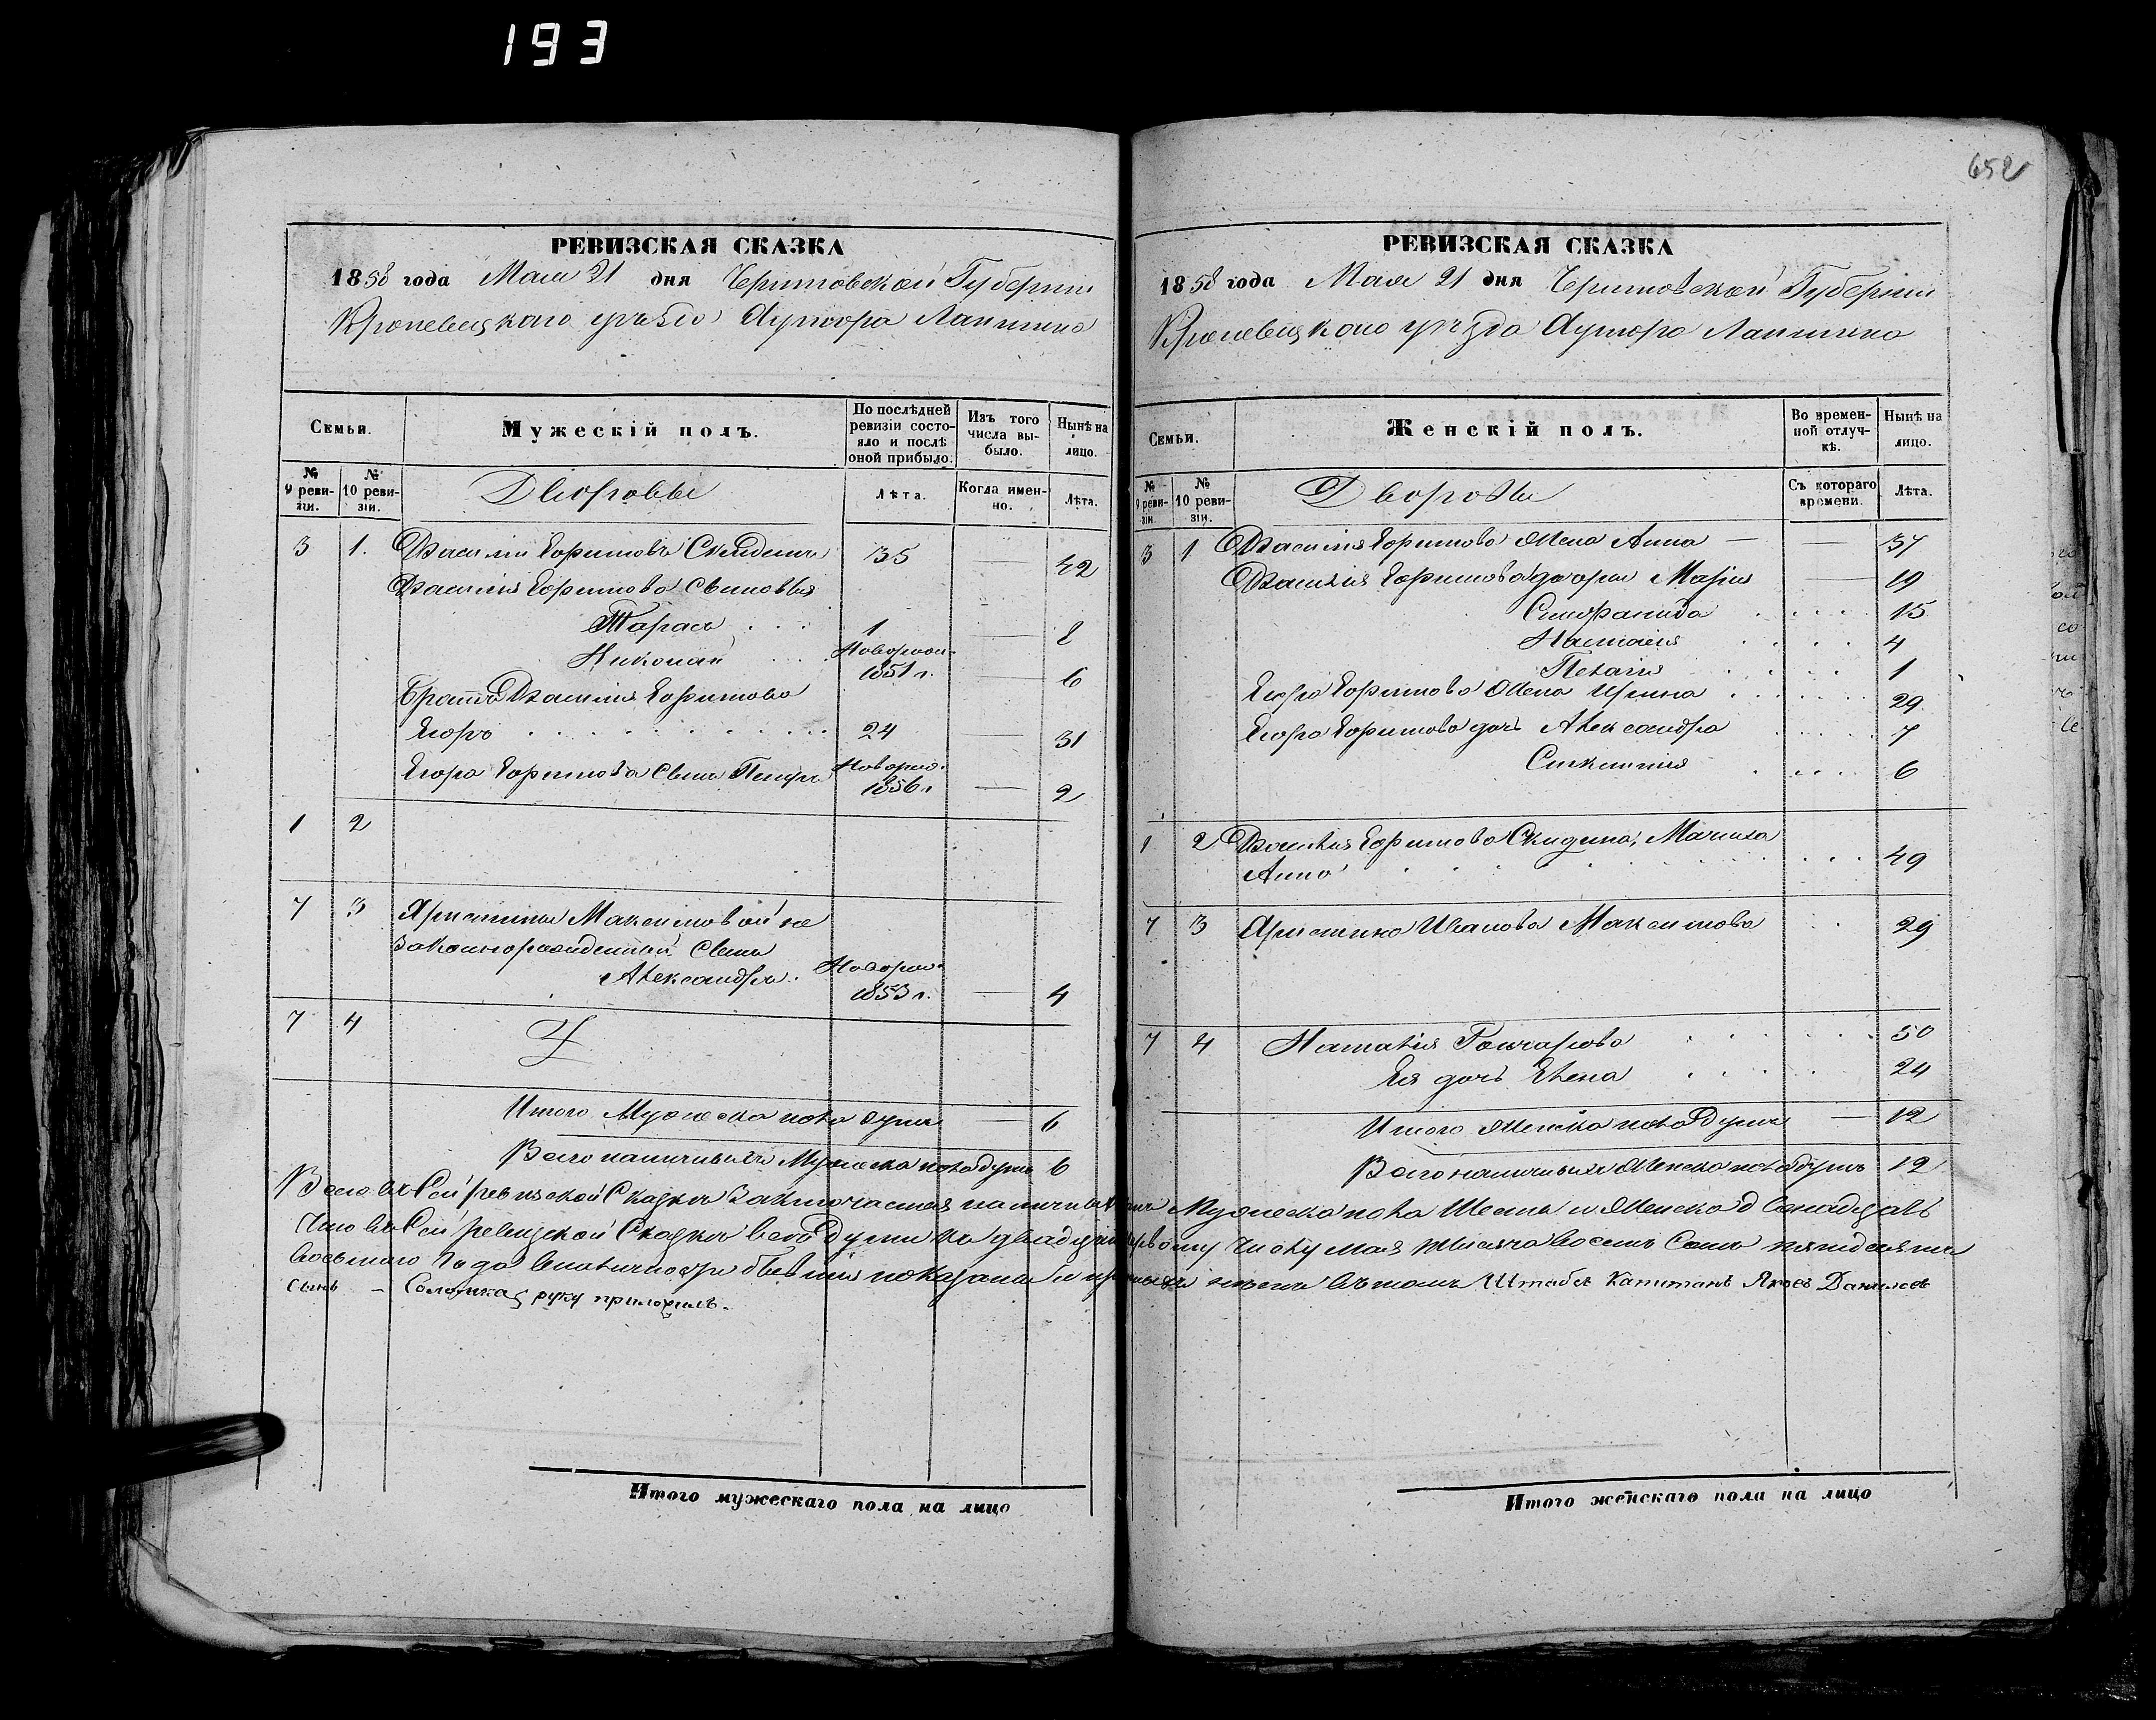 193
652
РЕВИЗСКАЯ СКАЗКА
1858 года Мая 21 дня Черниговской Губернии
Кролевецкого уезда Хутора Лапшина
Семьи.
Мужескій полъ.
По послѣдней ревизіи состояло и послѣ оной прибыло.
Изъ того числа выбыло.
Нынѣ на лицо.
№ 9 ревизіи.
№ 10 ревизіи.
Дворовые
Лѣта.
Когда именно.
Лѣта.
3 1. Василий Ефимовъ 35 — 42
Василия Ефимова Сыновья
Тарасъ 1 — 8
Николай Новорож. 1851 г. — 6
Братъ Василия Ефимова
Егоръ 24 — 31
Егора Ефимова Сынъ Петръ Новорож. 1856 г. — 2
1 2
7 3 Максимовой не
законнорожденный Сынъ
Александръ. Новорож. 1853 г. — 4
7 4
Итого Мужеска пола душъ — 6
Всего наличныхъ Мужеска пола душъ 6
РЕВИЗСКАЯ СКАЗКА
1858 года Мая 21 дня Черниговской Губернии
Кролевецкого уезда Хутора Лапшина
Семьи.
Женскій полъ.
Во временной отлучкѣ.
Нынѣ на лицо.
№ 9 ревизіи.
№ 10 ревизіи.
Дворовые
Съ котораго времени.
Лѣта.
3 1 Василия Ефимова Жена Анна — — 37
Василия Ефимова дочери Мария — 19
15
Наталия 4
Пелагия 1
Егора Ефимова Жена Ирина 29
Егора Ефимова дочь Александра 7
6
1 2 Василия Ефимова Мачиха
Анна 49
7 3 Иванова Максимова 29
7 4 Наталия Гончарова 50
Ея дочь Елена 24
Итого Женска пола душъ — 12
Всего наличныхъ Женска пола душъ 12
Всего въ Сей ревизской Сказкѣ Заключается наличныхъ душъ Мужеска пола Шесть и Женска Двенадцать
Что въ Сей ревизской Сказкѣ все души къ двадцать первому числу мая тысяча восемь Сотъ пятьдесятъ
восьмого Года показаны и въ томъ Штабсъ Капитанъ Яковъ Даниловъ
Сынъ – руку приложилъ.
Итого мужескаго пола на лицо
Итого женскаго пола на лицо